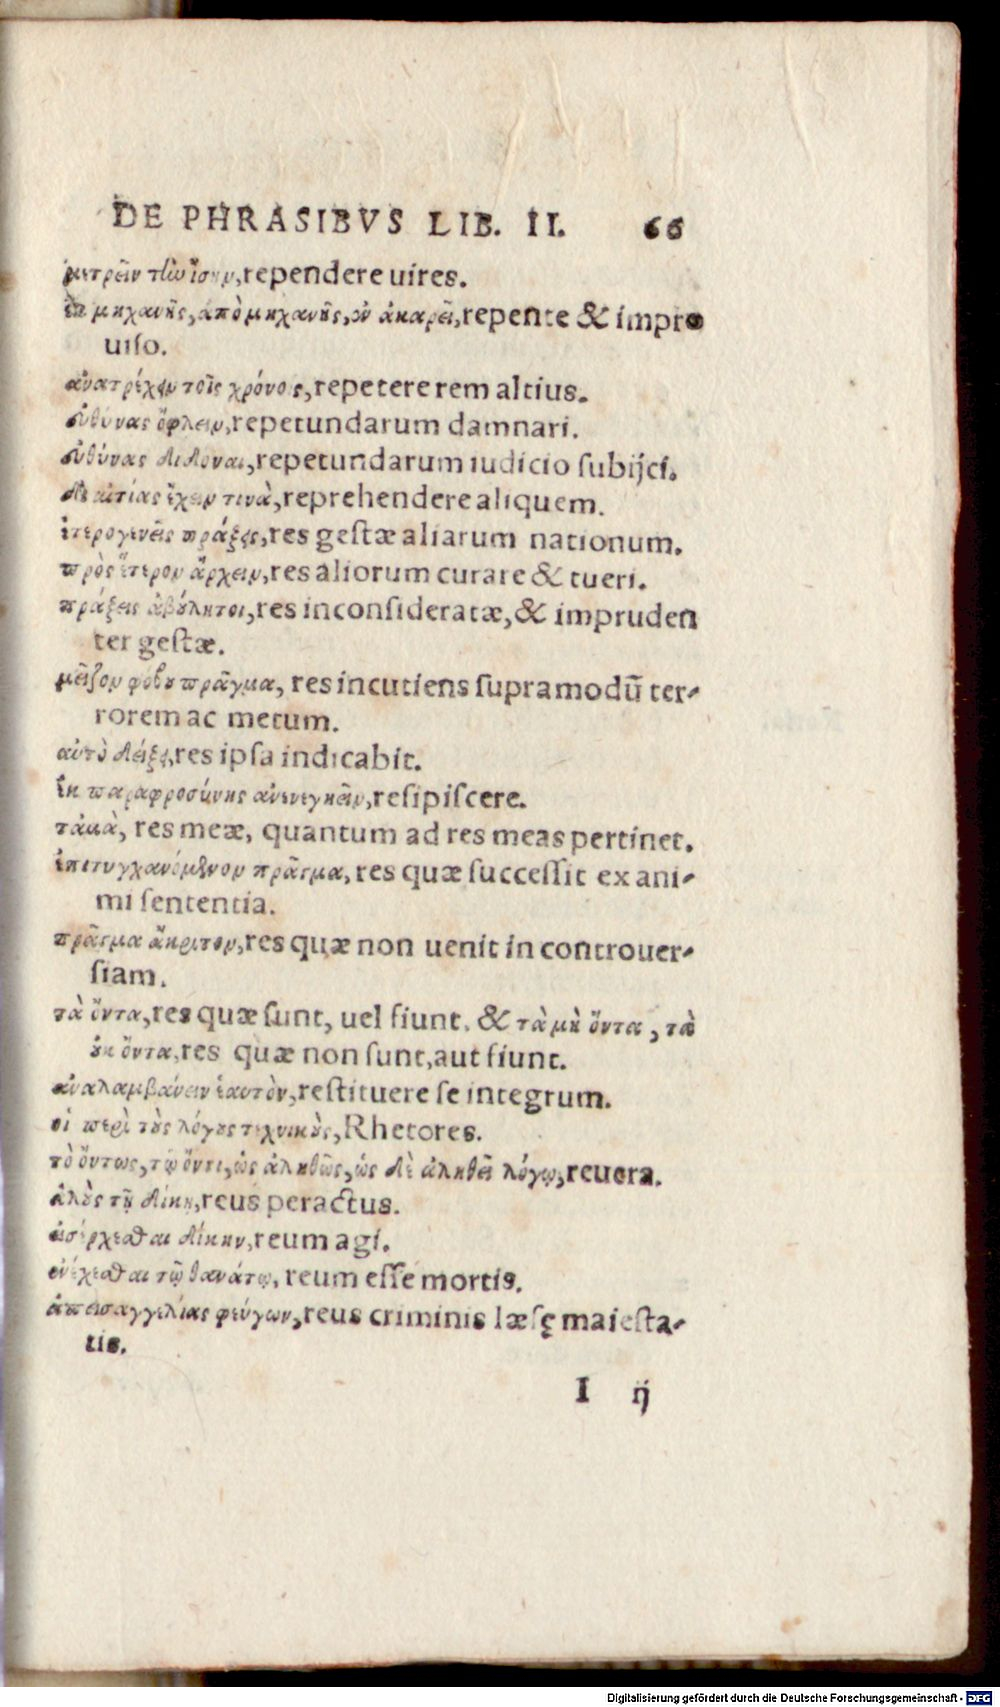 DE PHRASIBVS LIB. II. 66
μετρεῖν τὴν ἴσην, rependere uires.
ἐκ μηχανῆς, ἀπὸ μηχανῆς, ἐν ἀκαρεῖ, repente & impro
uiſo.
ἀνατρέχειν τοῖς χρόνοις, repetere rem altius.
εὐθύνας ὄφλειν, repetundarum damnari.
εὐθύνας διδόναι, repetundarum iudicio ſubijci.
δι αἰτίας ἔχειν τινὰ, reprehendere aliquem.
ἑτερογενεῖς πράξεις, res geſtæ aliarum nationum.
πρὸς ἕτερον ἄρχειν, res aliorum curare & tueri.
πράξεις ἀβούλητοι, res inconſideratæ, & impruden
ter geſtæ.
μεῖζον φόβου πρᾶγμα, res incutiens ſupra modū ter-
rorem ac metum.
αὐτὸ δείξει, res ipſa indicabit.
ἐκ παραφροσύνης ἀνενεγκεῖν, reſipiſcere.
τἀμὰ, res meæ, quantum ad res meas pertinet.
ἐπιτυγχανόμενον πρᾶγμα, res quæ ſucceſſit ex ani-
mi ſententia.
πρᾶγμα ἄκριτον, res quæ non uenit in controuer-
ſiam.
τὰ ὄντα, res quæ ſunt, uel fiunt. & τὰ μὴ ὄντα, τὰ
οὐκ ὄντα, res quæ non ſunt, aut fiunt.
ἀναλαμβάνειν ἑαυτὸν, reſtituere ſe integrum.
οἱ περὶ τοὺς λόγους τεχνικοὺς, Rhetores.
τὸ ὄντως, τῷ ὄντι, ὡς ἀληθῶς, ὡς δὲ ἀληθεῖ λόγῳ, reuera.
ἁλοὺς τῇ δίκῃ, reus peractus.
εἰσέρχεσθαι δίκην, reum agi.
ἐνέχεσθαι τῷ θανάτῳ, reum eſſe mortis.
ἀπ εἰσαγγελίας φεύγων, reus criminis læſę maieſta-
tis.
I ij
Digitalisierung gefördert durch die Deutsche Forschungsgemeinschaft - DFG